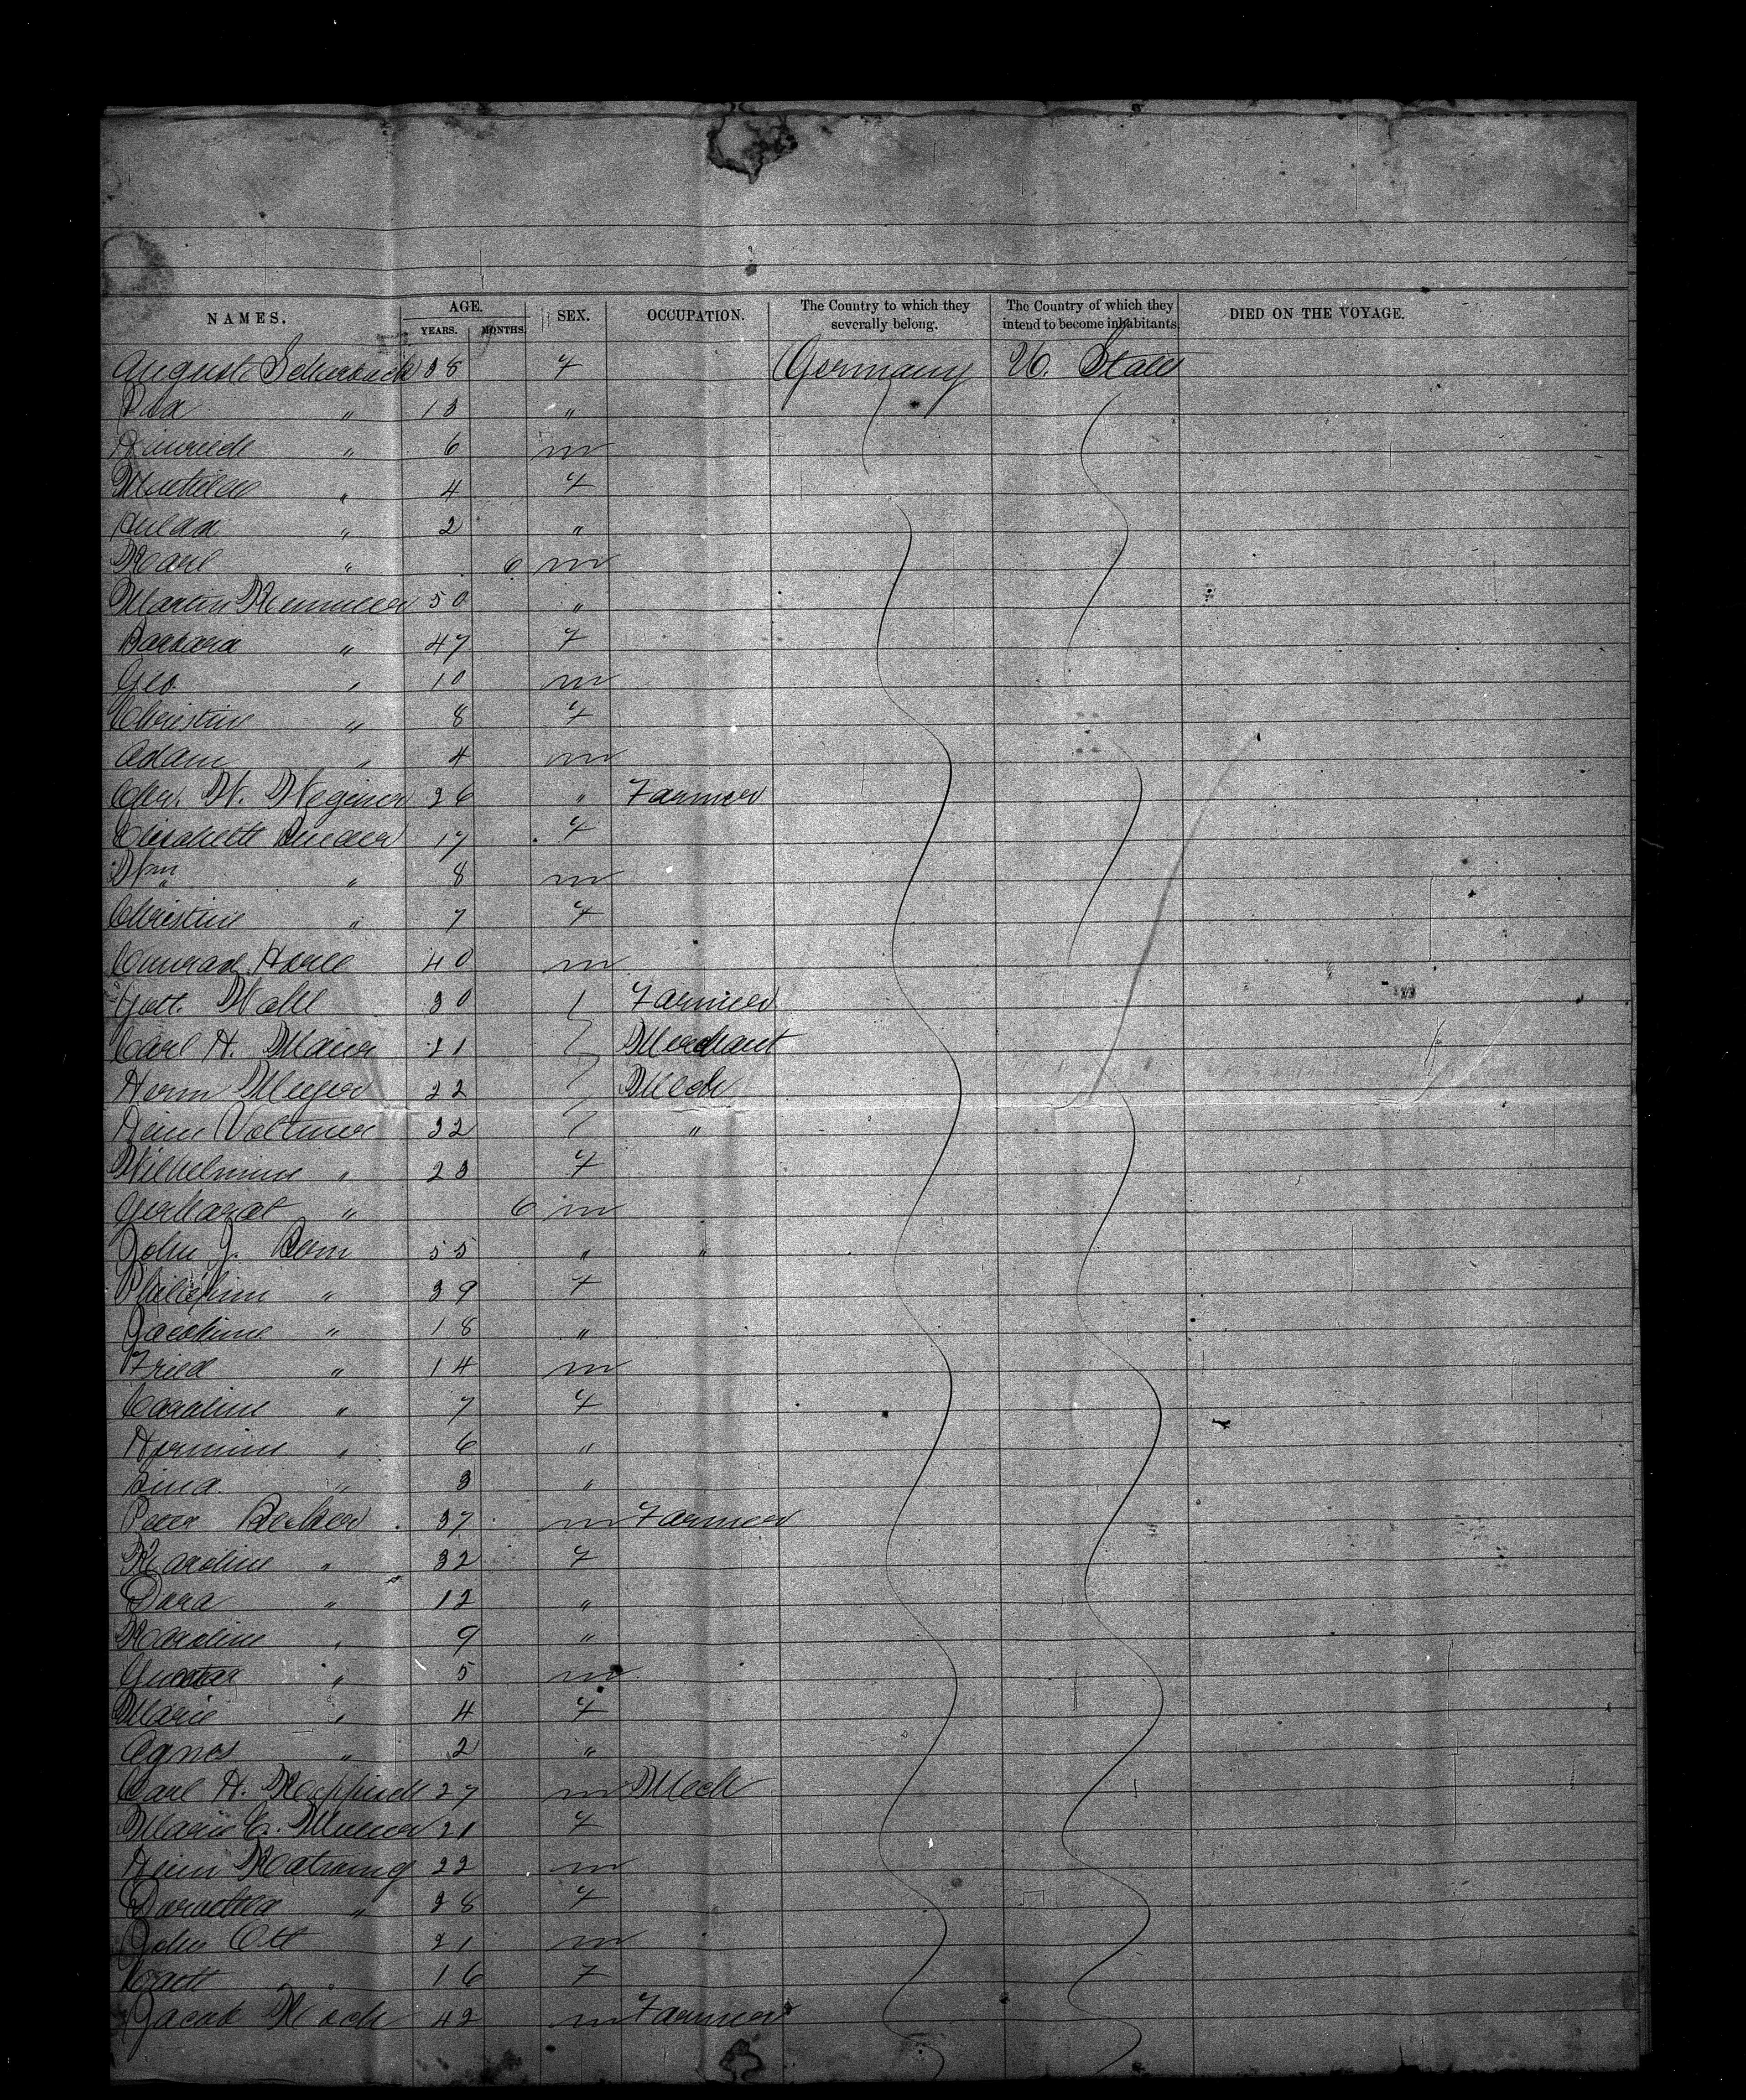 NAMES. AGE. YEARS. MONTHS. SEX. OCCUPATION. The Country to which they severally belong. The Country of which they intend to become inhabitants. DIED ON THE VOYAGE.
August 28 f Germany U. States
13 "
" 6 m
" 4 f
Hulda " 2 "
Karl " 6 m
Martin 50 "
Barbara " 47 f
Geo. " 10 m
Christine " 8 f
Adam " 4 m
Chr. W. Wegener 26 " Farmer
Elisabeth 17 f
Wm " 8 m
Christine " 7 f
Conrad 40 m
Gott. Wahl 30 Farmer
Carl H. Maier 21 Merchant
Herm Meyer 22 Mech
Heinr Voltmer 32 "
Wilhelmine " 23 f
Gerhardt " 6 m
John J. 55 " "
Philippine " 39 f
Jacobine " 18 "
Fried " 14 m
Caroline " 7 f
Hermine " 6 "
Lina " 3 "
Peter Becker 37 m Farmer
Karoline " 32 f
Dora " 12 "
Karoline " 9 "
Gustav " 5 m
Marie " 4 f
Agnes " 2 "
Carl H. 27 m Mech
Marie C. 21 f
Heinr 22 m
Dorothea " 28 f
John Ott 21 m
16 f
Jacob Koch 42 m Farmer